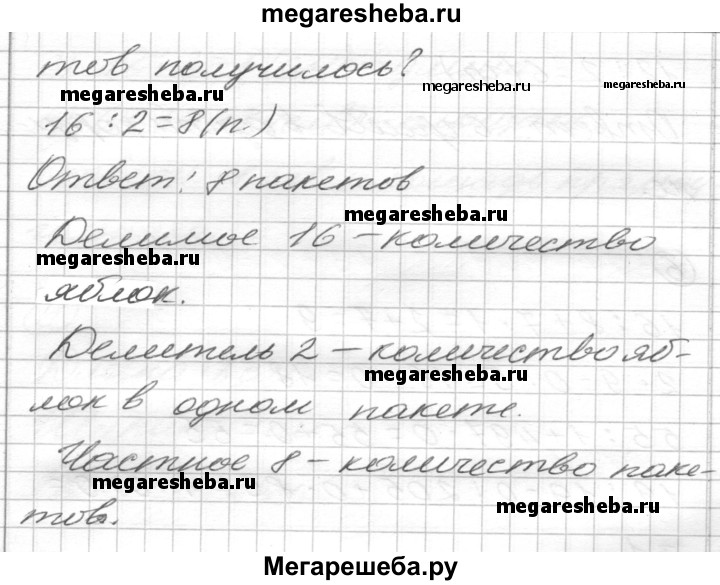 megaresheba.ru
тов получилось?
megaresheba.ru
megaresheba.ru
megaresheba.ru
16 : 2 = 8 (п.)
Ответ: 8 пакетов
megaresheba.ru
Делимое 16 – количество
megaresheba.ru
яблок.
Делитель 2 – количество яб-
megaresheba.ru
лок в одном пакете.
Частное 8 – количество паке-
megaresheba.ru
megaresheba.ru
тов.
Мегарешеба.ру